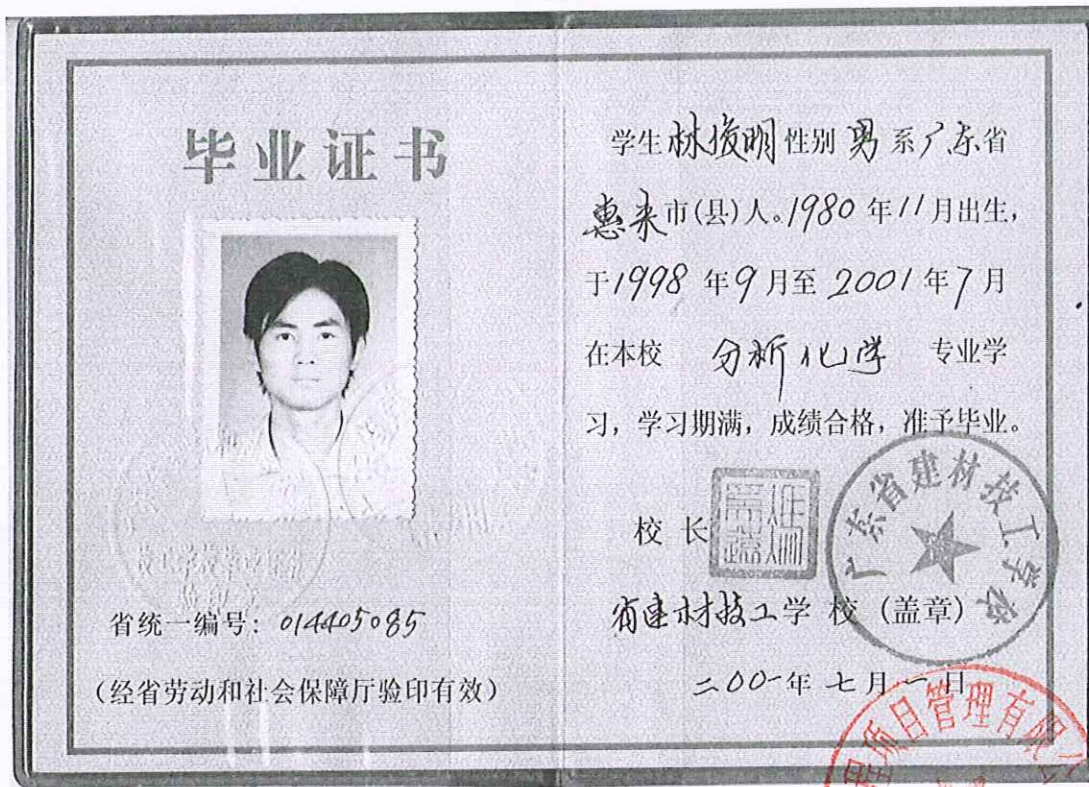 毕业证书
省统一编号：014405085
（经省劳动和社会保障厅验印有效）
学生林俊明性别男系广东省
惠来市(县)人。1980年11月出生，
于1998年9月至2001年7月
在本校 分析化学 专业学
习，学习期满，成绩合格，准予毕业。
校长
广东省建材技工学校
省建材技工学校（盖章）
二00一年七月一日
程项目管理有限公